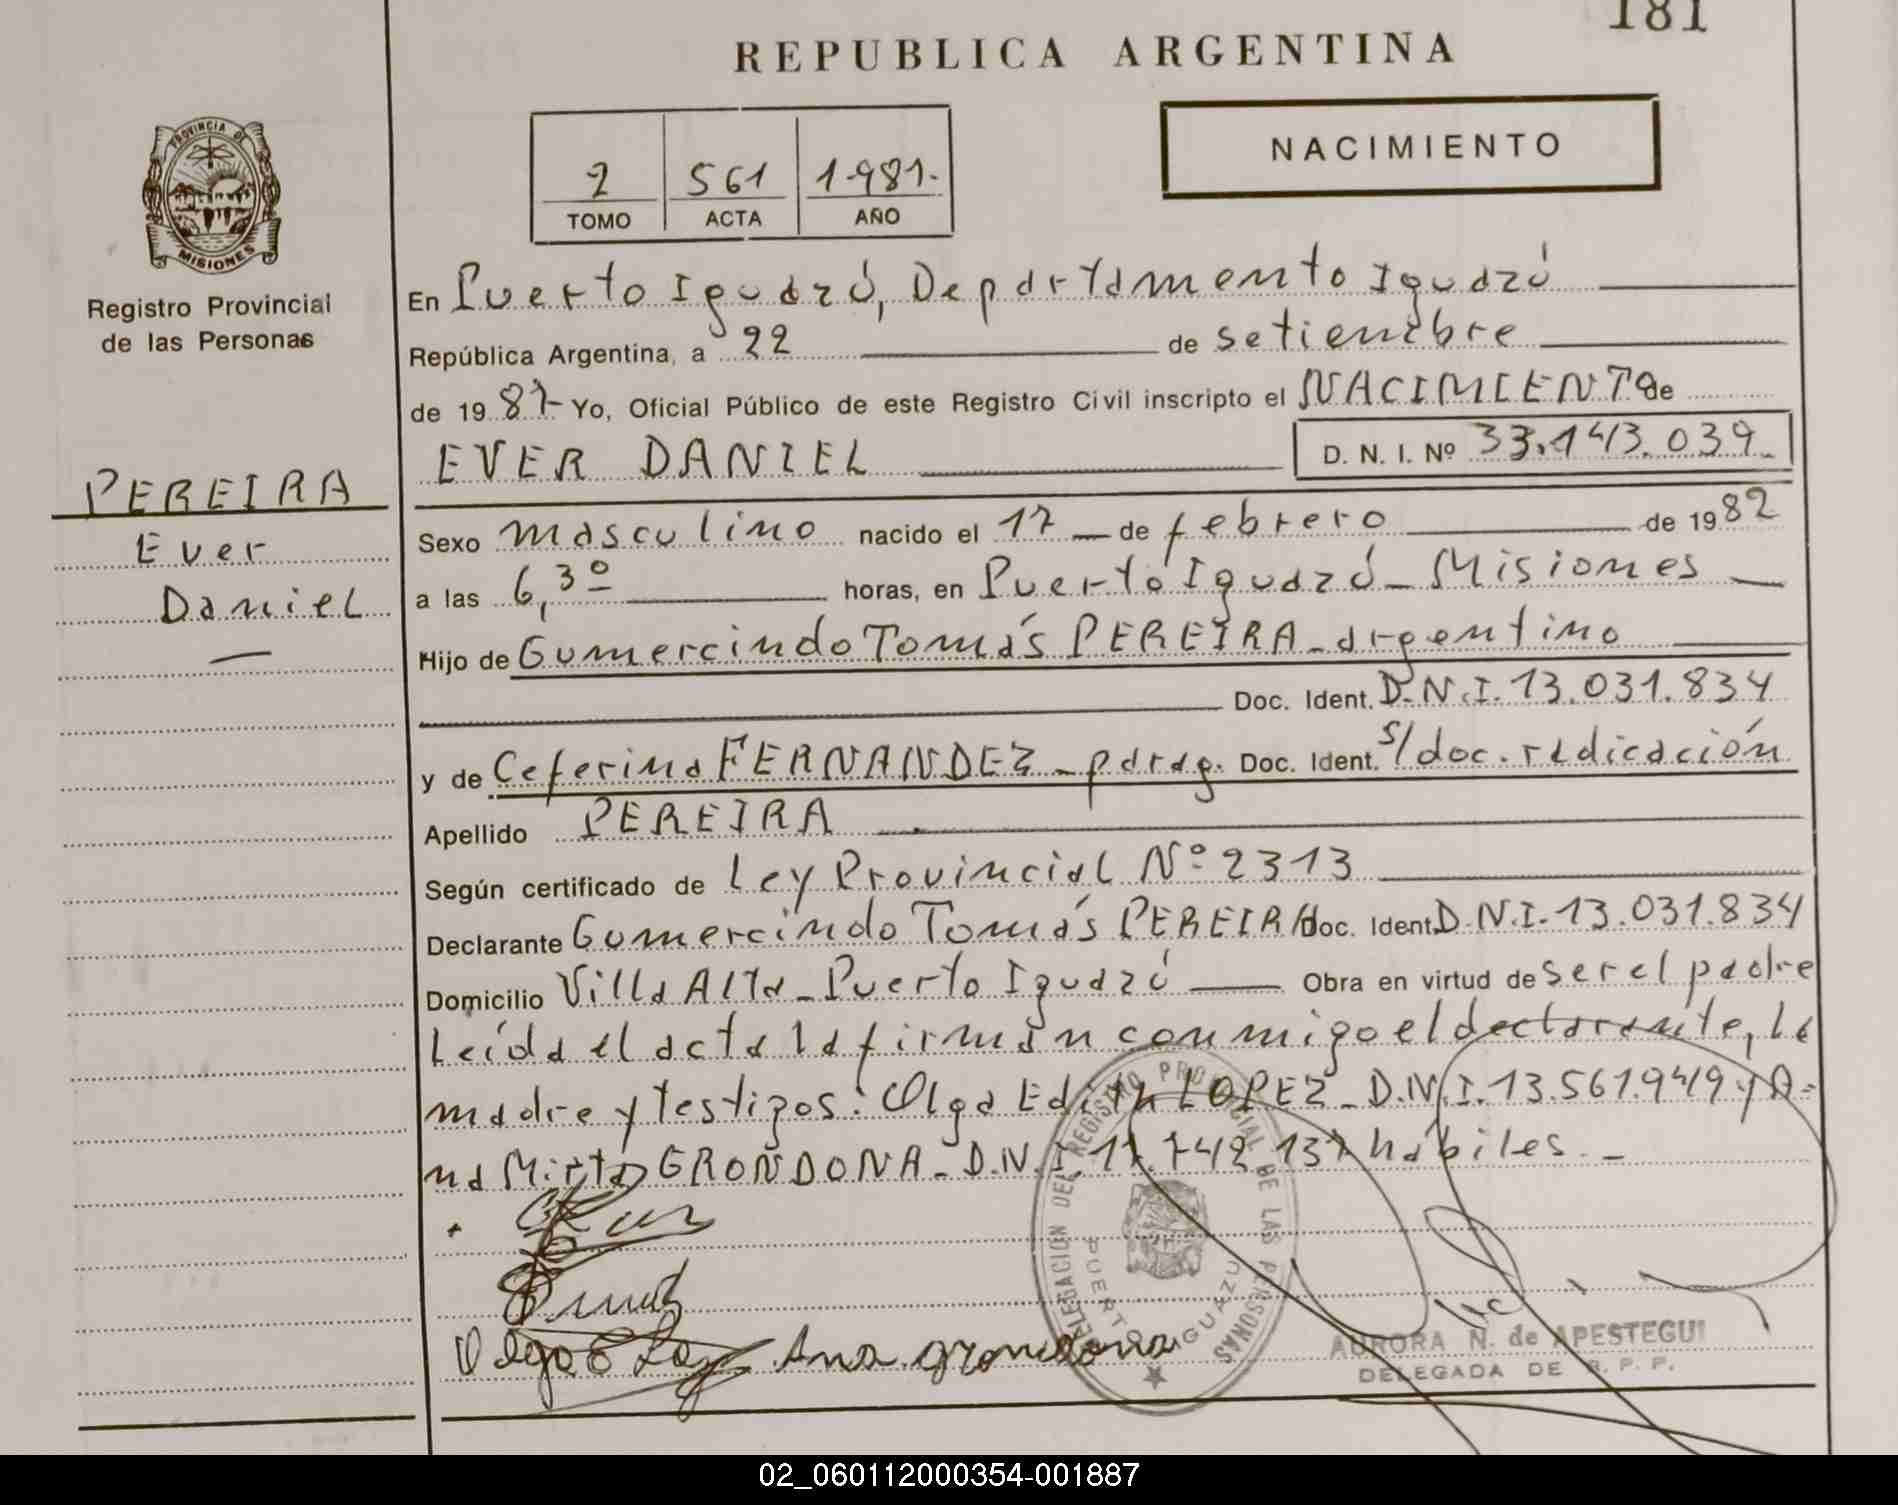 181
REPUBLICA ARGENTINA
NACIMIENTO
2 561 1.981.
TOMO ACTA AÑO
PROVINCIA DE MISIONES
Registro Provincial
de las Personas
En Puerto Iguazú, Departamento Iguazú
República Argentina, a 22 de setiembre
de 1987- Yo, Oficial Público de este Registro Civil inscripto el NACIMIENTO de
EVER DANIEL D. N. I. Nº 33.143.039.
PEREIRA
Ever
Daniel
Sexo masculino nacido el 17 de febrero de 1982
a las 6,30 horas, en Puerto Iguazú - Misiones
Hijo de Gumercindo Tomás PEREIRA - argentino
Doc. Ident. D.N.I. 13.031.834
y de Ceferina FERNANDEZ - parag. Doc. Ident. s/doc. radicación
Apellido PEREIRA
Según certificado de Ley Provincial Nº 2313
Declarante Gumercindo Tomás PEREIRA Doc. Ident. D.N.I. 13.031.834
Domicilio Villa Alta - Puerto Iguazú Obra en virtud de ser el padre
Leída el acta la firman conmigo el declarante, la
madre y testigos: Olga Edith LOPEZ - D.N.I. 13.561.949 y A=
na Mirta GRONDONA - D.N.I. 11.742.137 hábiles. -
Ana grondona
DELEGACION DEL REGISTRO PROVINCIAL DE LAS PERSONAS
PUERTO IGUAZU
AURORA N. de APESTEGUI
DELEGADA DE R. P. P.
02_060112000354-001887